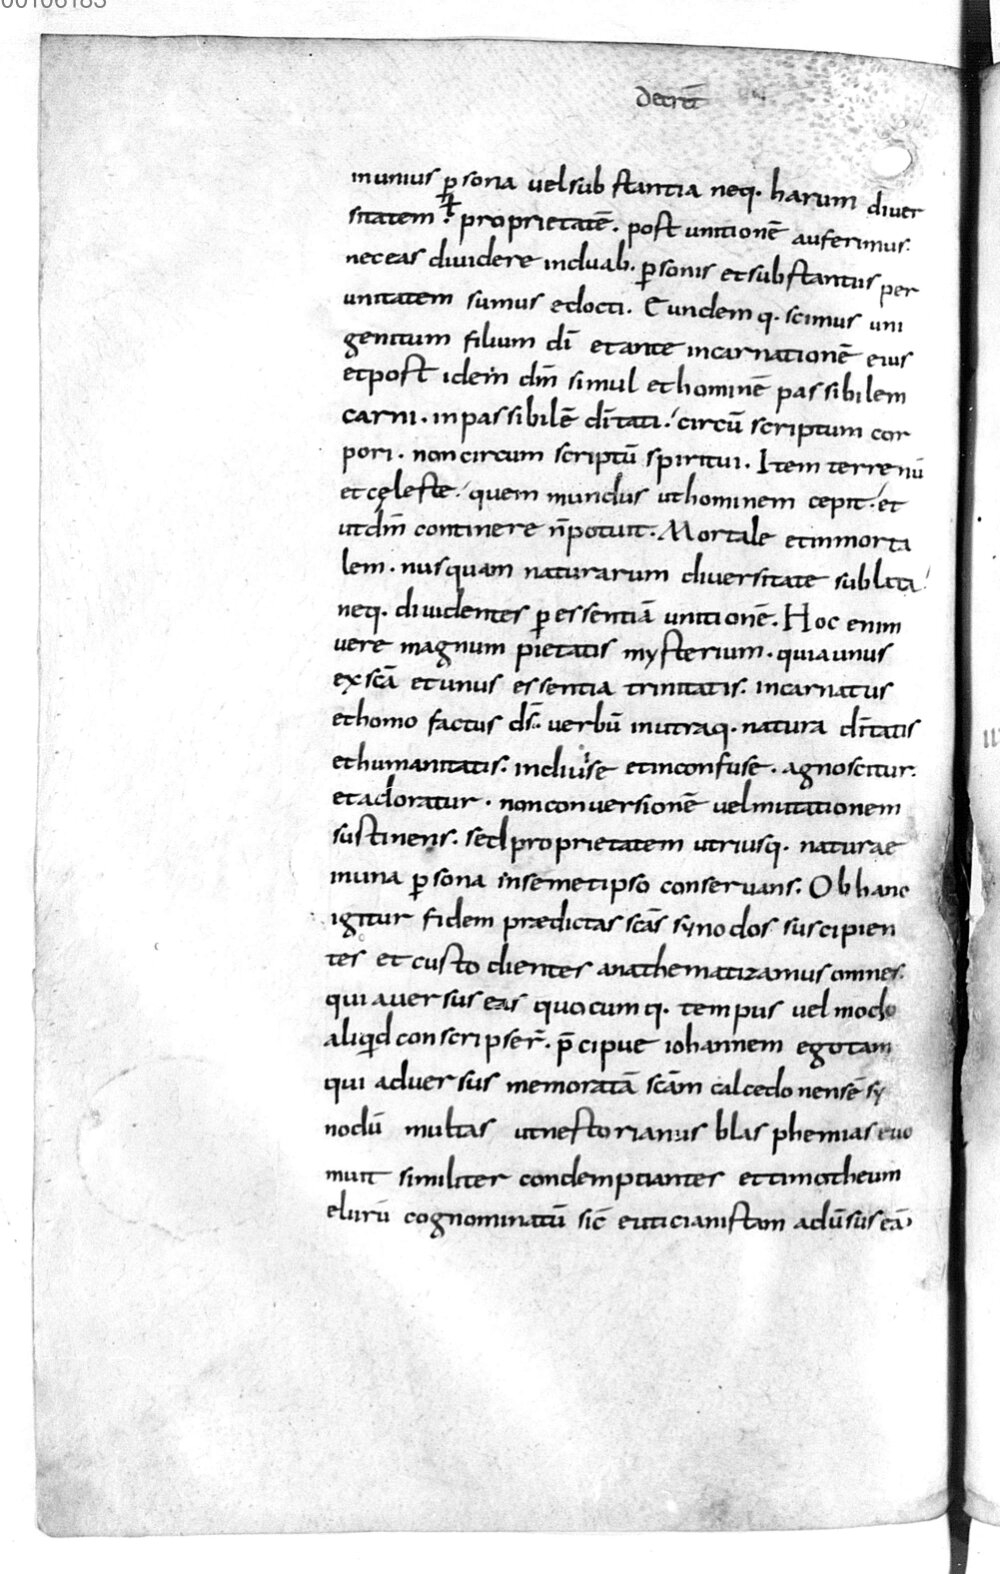 00106183
decret̄
in unius ꝑsona vel substantia neq. harum diver
sitatem ł proprietatē. post unitionē auferimus.
nec eas dividere in duab. ꝑsonis et substantiis per
unitatem sumus edocti. Eundem q. scimus uni
genitum filium dī et ante incarnationē eius
et post idem dm̄ simul et hominē passibilem
carni. inpassibilē dītati. circū scriptum cor
pori. non circum scriptū spiritui. Item terrenū
et cęleste. quem mundus ut hominem cepit. et
ut dm̄ continere n̄ potuit. Mortale et inmorta
lem. nusquam naturarum diversitate sublata.
neq. dividentes ꝑ essentiā unitionē. Hoc enim
vere magnum pietatis mysterium. quia unus
ex scā et unus essentia trinitatis. incarnatus
et homo factus ds̄. verbū in utraq. natura dītatis
et humanitatis. indivise et inconfuse. agnoscitur.
et adoratur. non conversionē vel mutationem
sustinens. sed proprietatem utriusq. naturae
in una ꝑsona in semetipso conservans. Ob hanc
igitur fidem prædictas scās synodos suscipien
tes et custodientes anathematizamus omnes.
qui aversus eas quocumq. tempus vel modo
aliqd conscripser̄. p̄cipue iohannem egotam
qui adversus memoratā scām calcedonensē sy
nodū multas ut nestorianus blasphemias evo
muit similiter condemptiantes et timotheum
elurū cognominatū sic̄ euticianistam adūsus eā